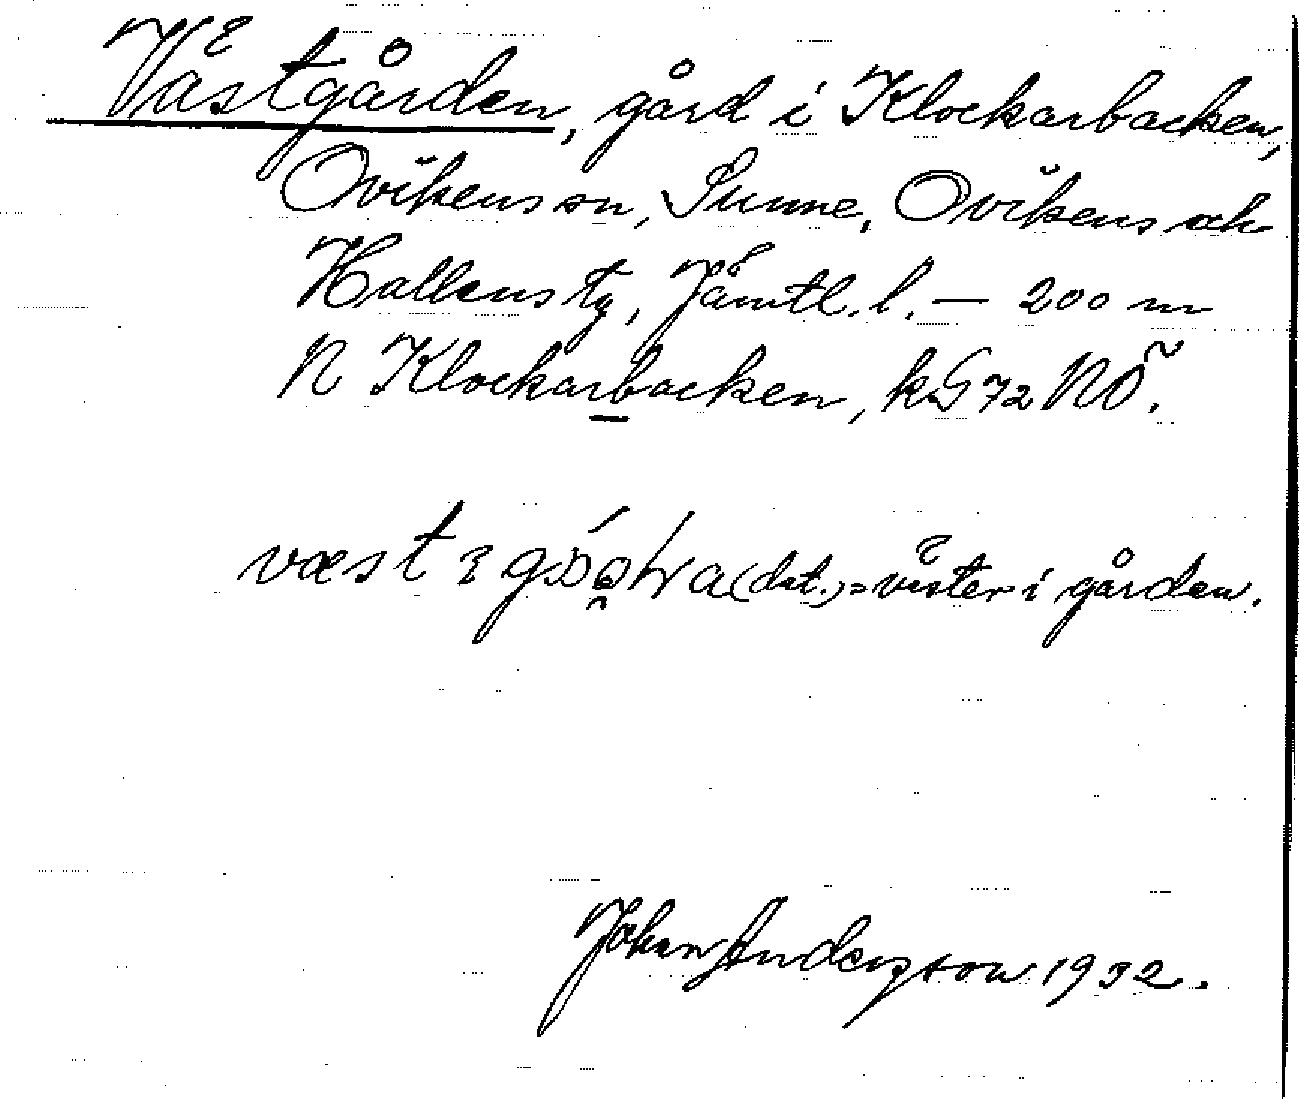 Västgården, gård i Klockarbacken,
Ovikens sn, Sunne, Ovikens och
Hallens tg, Jämtl. l. — 200 m
N Klockarbacken, k G 72 NÖ.
(dat.) = väster i gården.
Johan Andersson 1932.